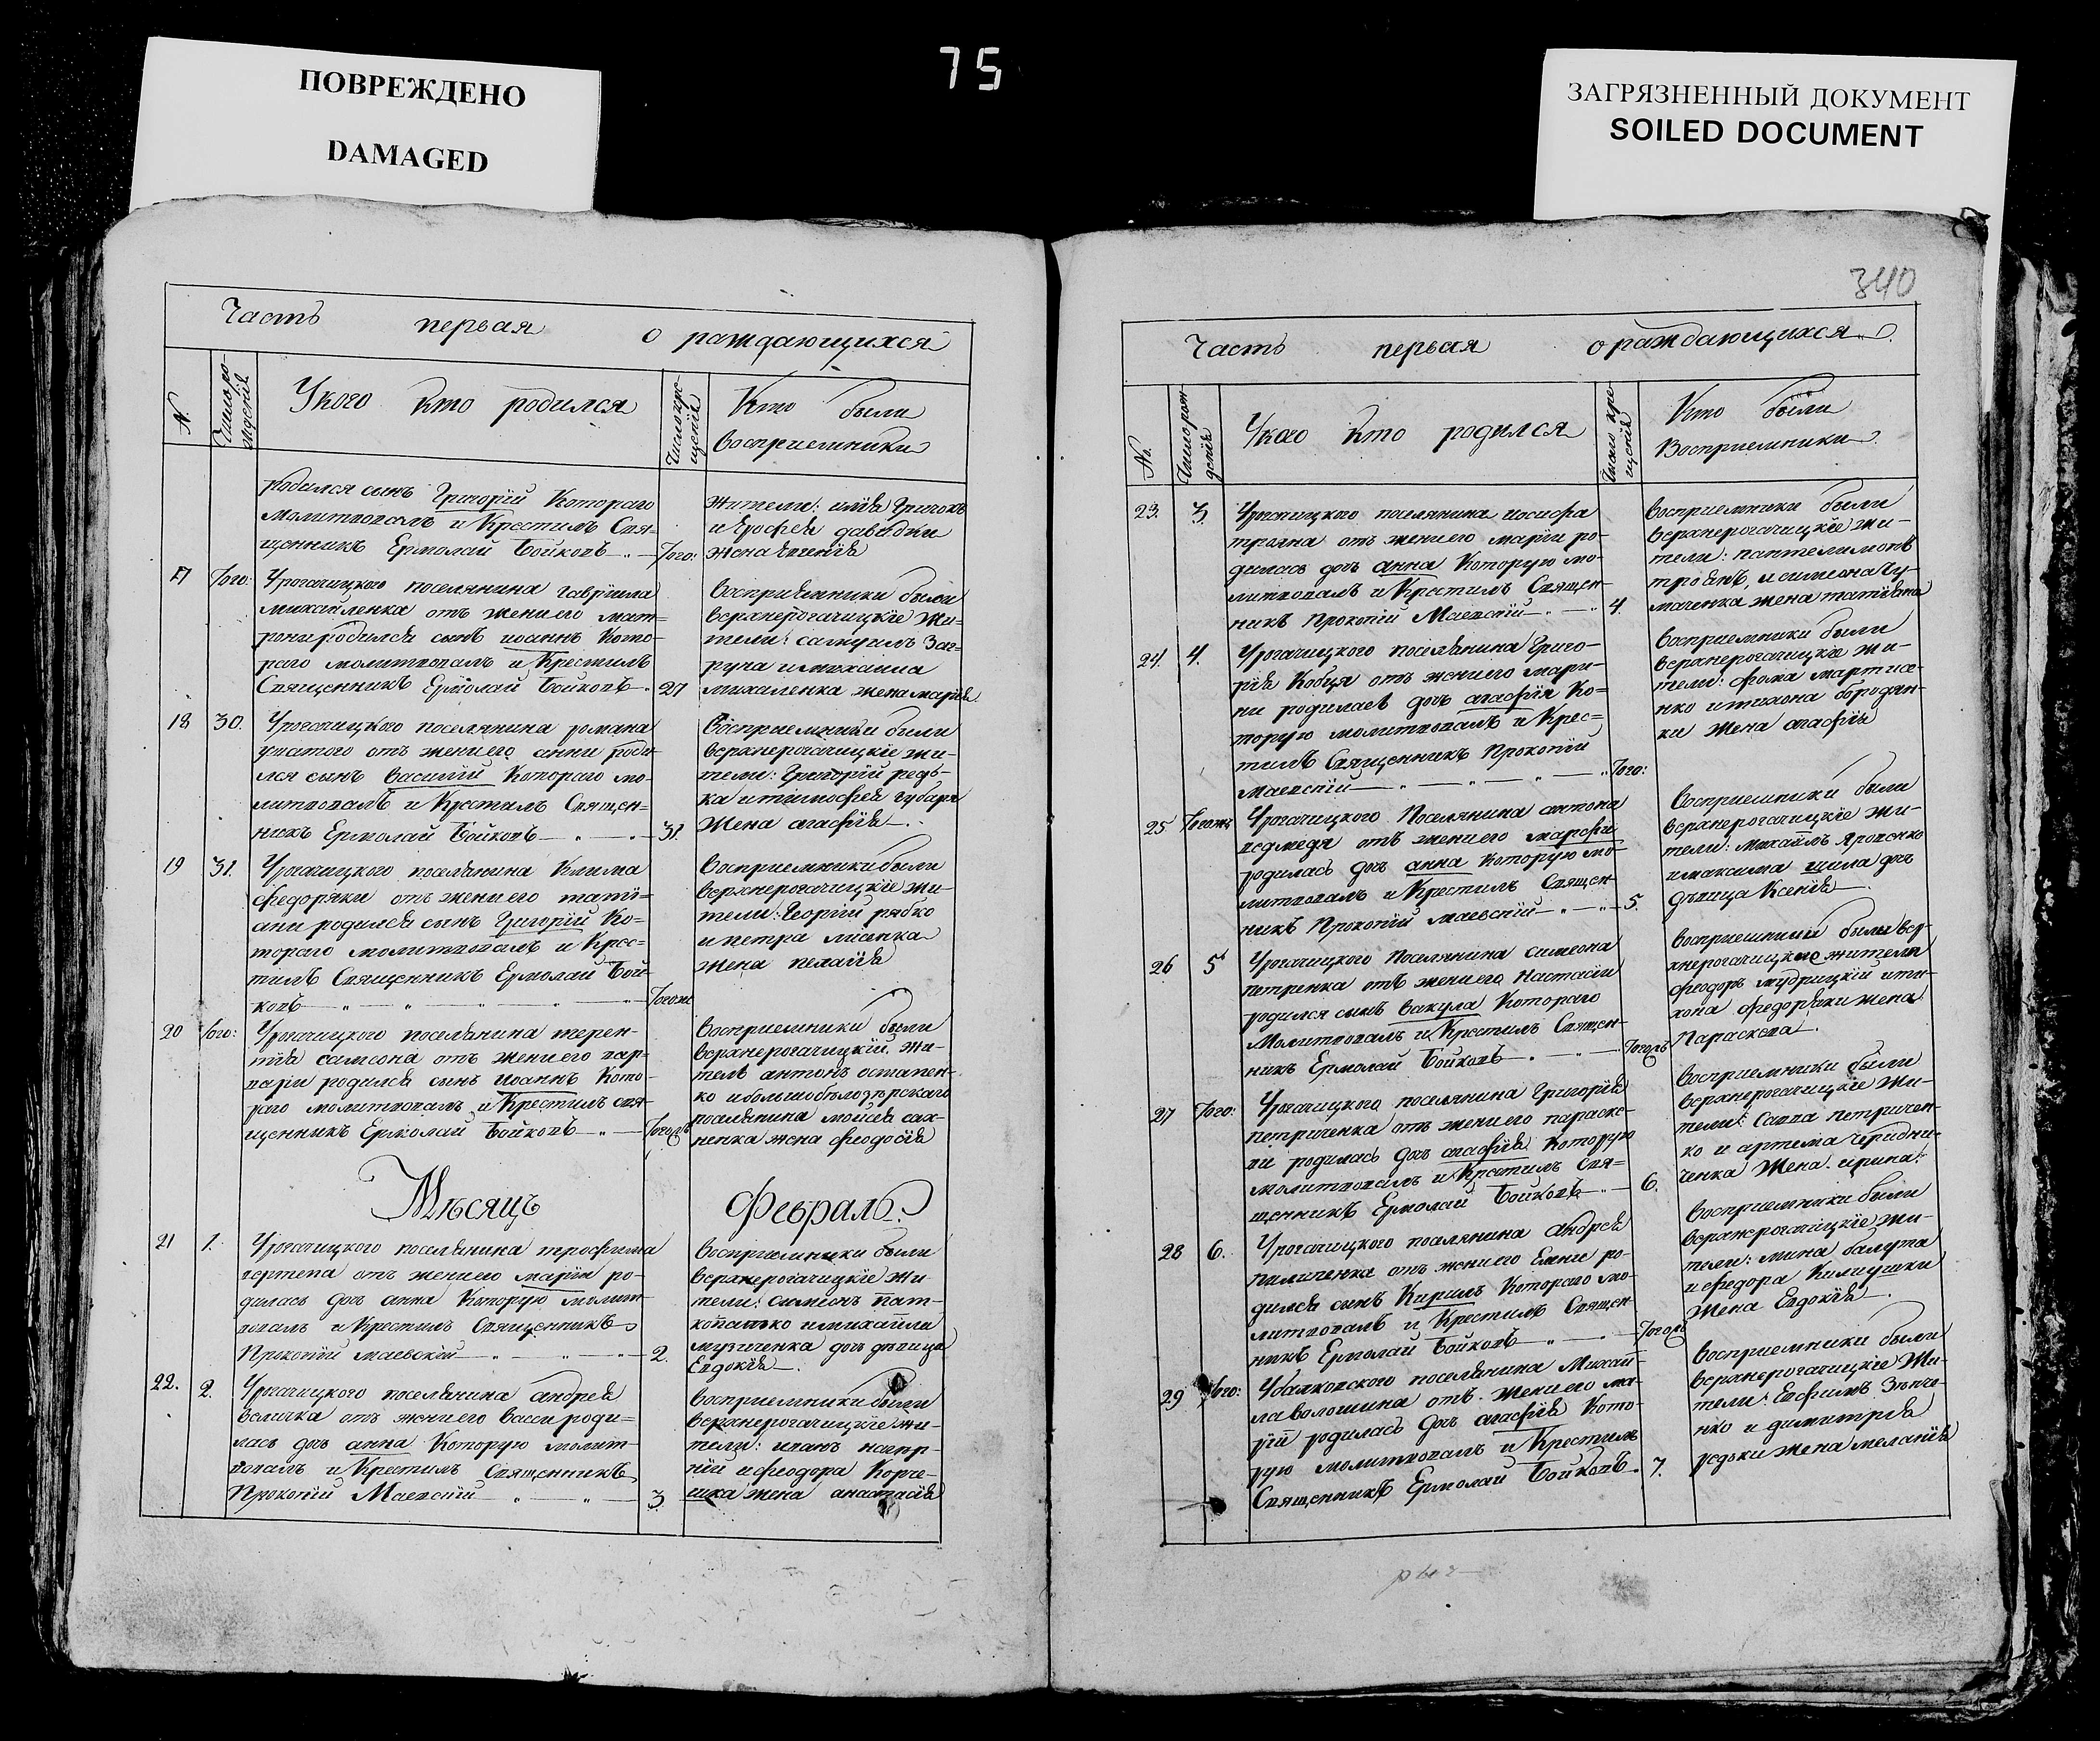 75
ПОВРЕЖДЕНО
DAMAGED
ЗАГРЯЗНЕННЫЙ ДОКУМЕНТ
SOILED DOCUMENT
Часть первая о раждающихся
№
Число рождения
У кого кто родился
Число крещения
Кто были
восприемники
родился сынъ Григорій Котораго
молитвовалъ и Крестилъ Свя-
щенникъ Ермолай Бойковъ Того:
жители: илія Григокъ
и Ерофея давидки
жена Евгенія
17 Того: Урогачицкого поселянина гавріила
михайленка отъ жени его мат=
рони родился сынъ иоаннъ Кото-
раго молитвовалъ и Крестилъ
Священникъ Ермолай Бойковъ. 27
восприемники были
верхнерогачицкіе жи-
тели: самуилъ Заг=
руна и михаила
михаленка жена марія
18 30. Урогачицкого поселянина романа
отъ жени его анни роди-
лся сынъ василій Котораго мо-
литвовалъ и Крестилъ Священ=
никъ Ермолай Бойковъ 31.
Восприемники были
верхнерогачицкіе жи-
тели: Григорій редь-
ка и тимофея губаря
Жена агафія
19 31. Урогачицкого поселянина Клима
федоряки отъ жени его татія-
ани родился сынъ Григорій Ко-
тораго молитвовалъ и Крес=
тилъ Священникъ Ермолай Бой-
ковъ Тогожъ
Восприемники были
верхнерогачицкіе жи-
тели: Георгій рябко
и петра лисенка
жена пелагія
20 Того: Урогачицкого поселянина терен-
тія самсона отъ жени его вар-
вари родился сынъ иоаннъ Кото-
раго молитвовалъ и Крестилъ свя-
щенникъ Ермолай Бойковъ Тогожъ
Восприемники были
верхнерогачицкій жи-
тель антонъ остапен-
ко и большобѣлозѣрскаго
поселянина мойсея сах-
ненка жена феодосія
Мѣсяцъ Февраль.
21 1. Урогачицкого поселянина трофима
вертепа отъ жени его маріи ро-
дилась дочь анна Которую молит-
вовалъ и Крестилъ Священникъ
Прокопій маевскій 2.
восприемники были
верхнерогачицкіе жи-
тели: симеонъ
и михаила
музиченка дочь дѣвица
Евдокія
22. 2. Урогачицкого поселянина андрея
величка отъ жени его васи роди=
лась дочь анна Которую молит-
вовалъ и Крестилъ Священникъ
Прокопій Маевскій 3
восприемники были
верхнерогачицкіе жи-
тели: иванъ
и феодора Корче-
жена анастасія
340
Часть первая о раждающихся
№
Число рождения
У кого кто родился
Число крещения
Кто были
Восприемники
23. 3. Урогачицкого поселянина иосифа
трояна отъ жени его маріи ро-
дилась дочь анна Которую мо-
литвовалъ и Крестилъ Священ-
никъ Прокопій Маевскій 4.
восприемники были
верхнерогачицкіе жи-
тели: пантелимонъ
троянъ и симеона чу-
маченка жена татіяна
24. 4. Урогачицкого поселянина Григо-
рія Кобця отъ жени его мари-
ни родилась дочь агафія Ко=
торую молитвовалъ и Крес=
тилъ Священникъ Прокопій
маевскій Того:
Восприемники были
верхнерогачицкіе жи-
тели: фома мартисе-
нко и тихона бродян-
ки жена агафія
25 Тогожъ Урогачицкого Поселянина антона
ведмедя отъ жени его марфи
родилась дочь анна Которую мо-
литвовалъ и Крестилъ Священ-
никъ Прокопій маевскій 5.
Восприемники были
верхнерогачицкіе жи-
тели: михаилъ Яроненко
и максима щила дочь
дѣвица Ксенія
26 5 Урогачицкого Поселянина симеона
петренка отъ жени его Настасіи
родился сынъ вакула Котораго
Молитвовалъ и Крестилъ Священ-
никъ Ермолай Бойковъ Тогожъ
восприемники были вер-
хнерогачицкіе жители
феодоръ мудрицкій и ти-
хона федоряки жена
Параскева.
27 Того: Урогачицкого поселянина Григорія
петриченка отъ жени его параске-
ви родилась дочь агафія Которую
молитвовалъ и Крестилъ Свя=
щенникъ Ермолай Бойковъ 6.
Восприемники были
верхнерогачицкіе жи-
тели: Савва петричен-
ко и артема чередни-
ченка Жена ирина.
28 6. Урогачицкого поселянина Андрея
пилипенка отъ жени его Елени ро-
дился сынъ Кирилъ Котораго мо-
литвовалъ и Крестилъ Священ
никъ Ермолай Бойковъ Тогожъ
Восприемники были
верхнерогачицкіе жи-
тели: мина балута
и федора Килиушки
Жена Евдокія
29 Того: Убалковского поселянина Михай-
ла волошина отъ жени его ма-
ріи родилась дочь агафія Кото-
рую молитвовалъ и Крестилъ
Священникъ Ермолай Бойковъ 7.
Восприемники были
верхнерогачицкіе жи-
тели: Евфимъ Зѣнче-
нко и димитрія
редьки жена меланія